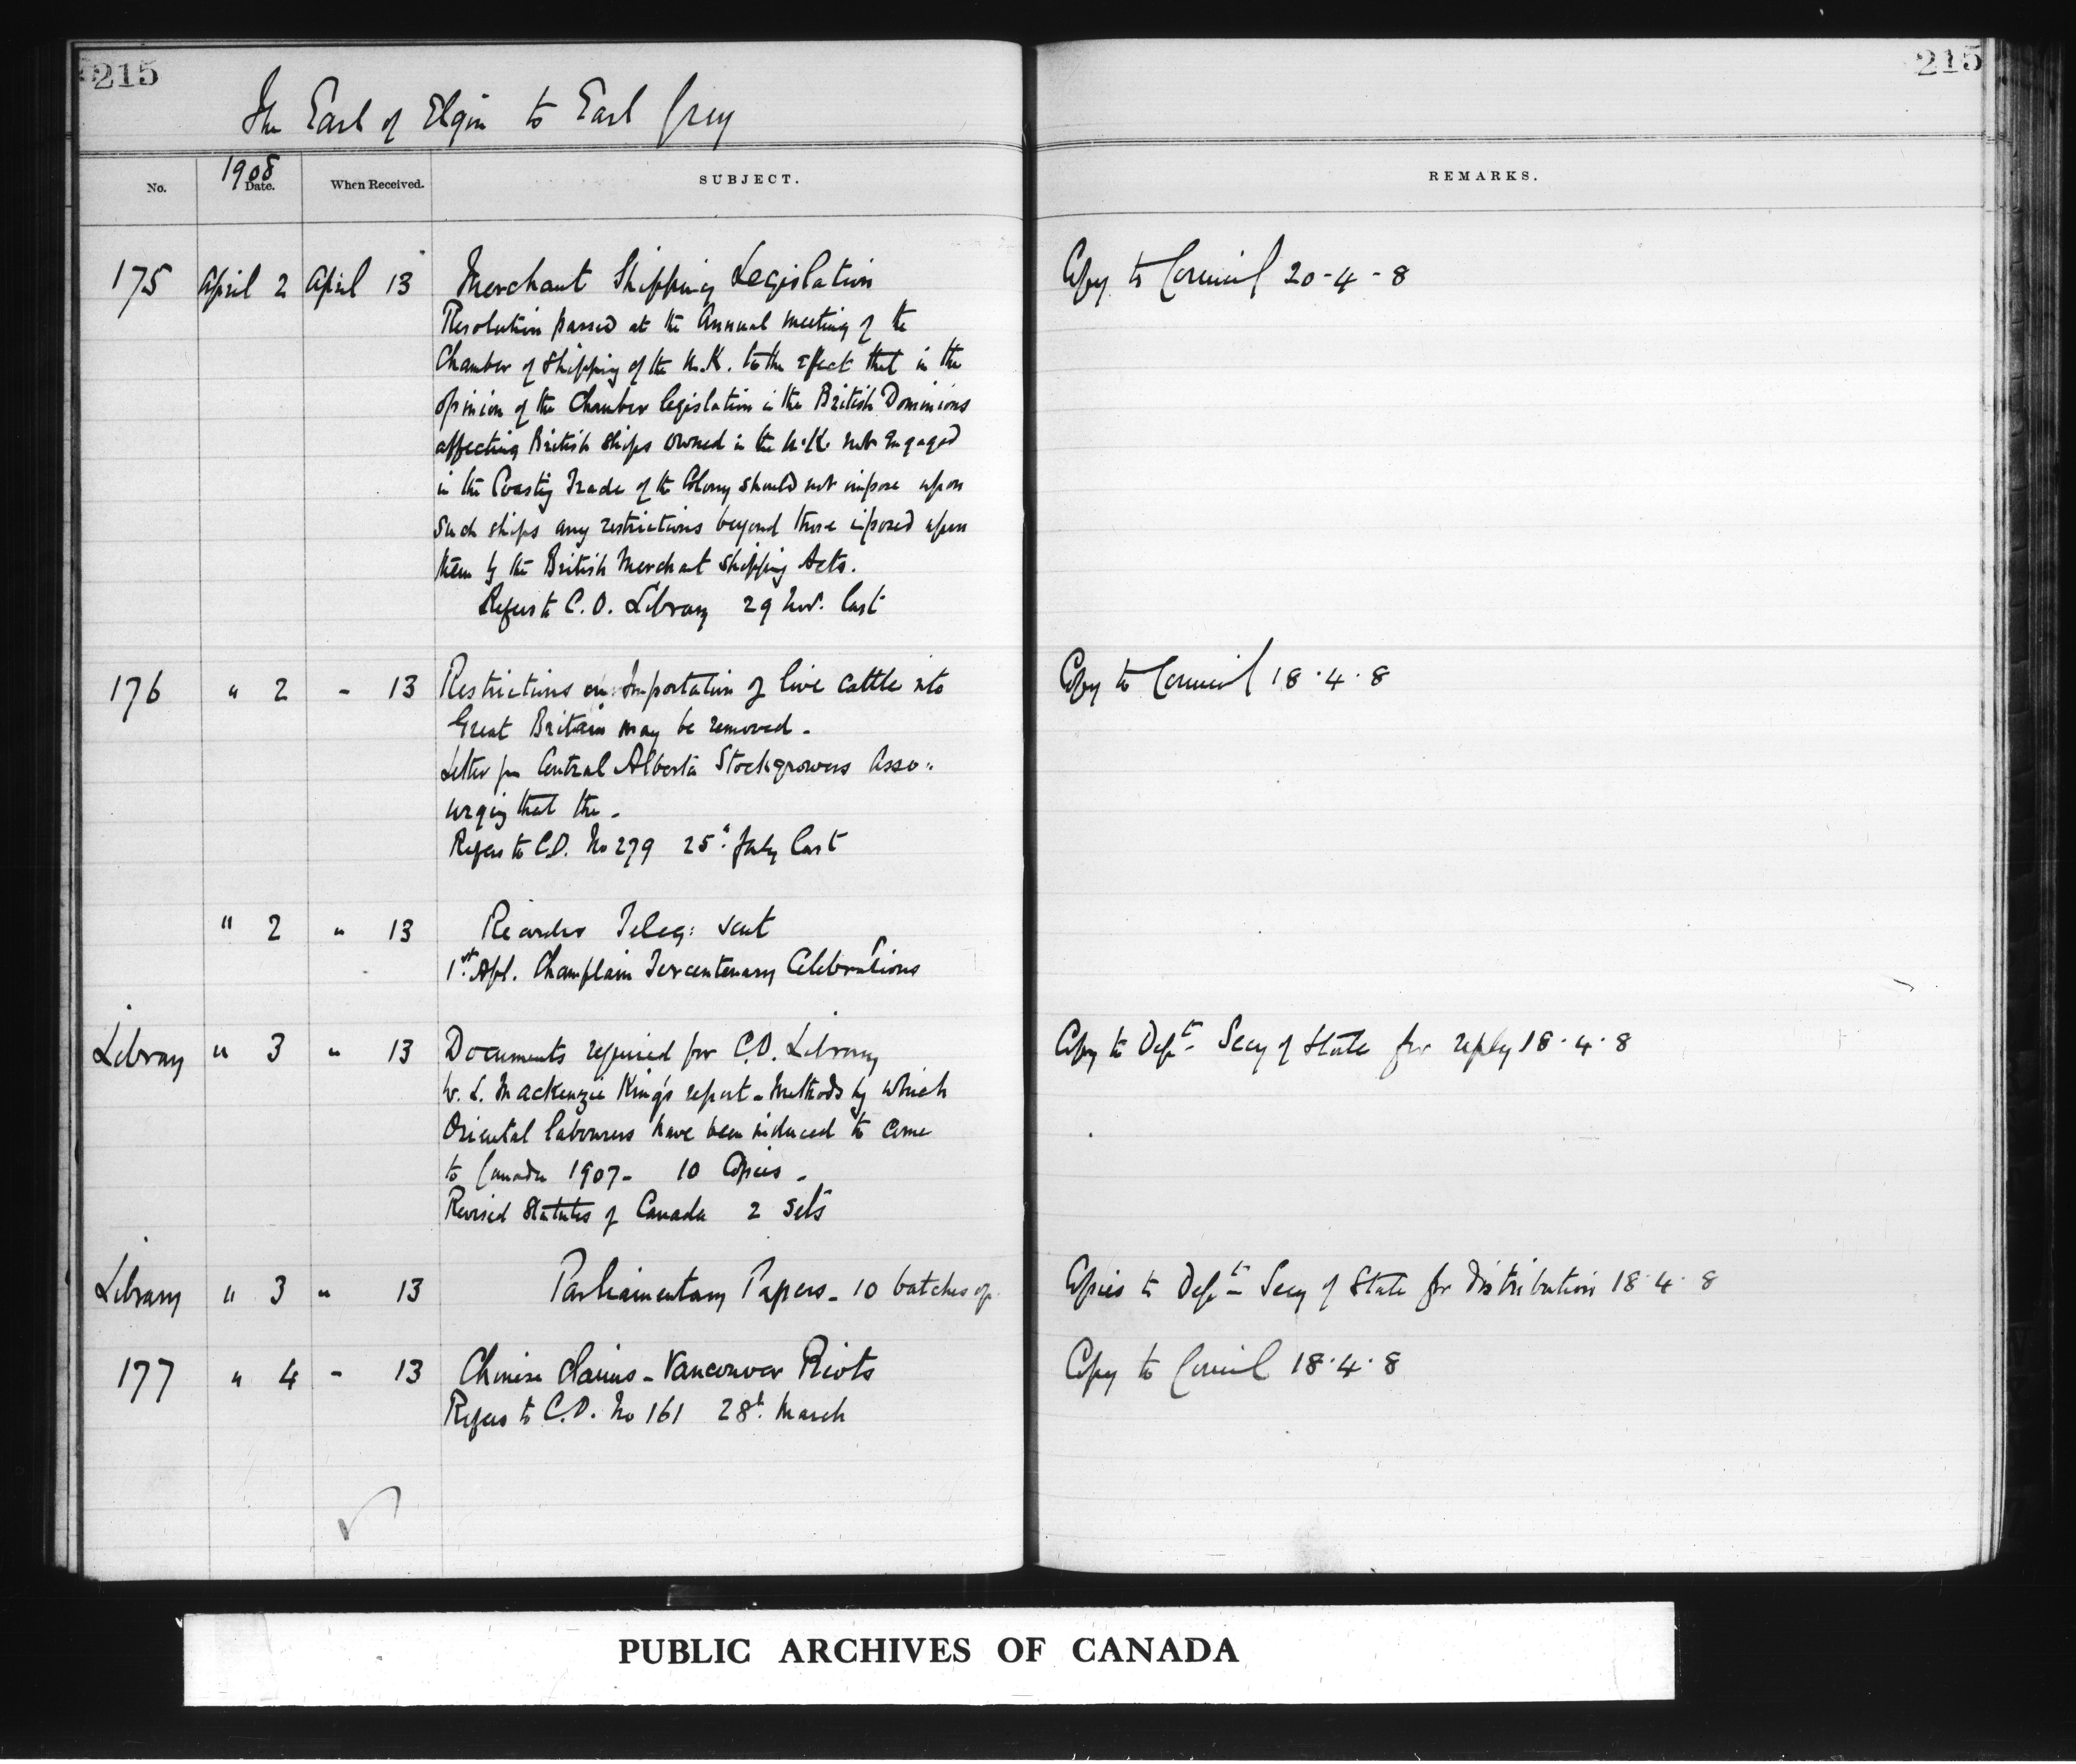 215
215
The Earl of Elgin to Earl Grey
1908
No. Date. When Received. SUBJECT. REMARKS.
175 April 2 April 13 Merchant Shipping Legislation Copy to Council 20-4-8
Resolution passed at the Annual meeting of the
Chamber of Shipping of the U.K. to the effect that in the
opinion of the Chamber legislation in the British Dominions
affecting British ships owned in the U.K. not engaged
in the Coasting Trade of the Colony should not impose upon
such ships any restrictions beyond those imposed upon
them by the British Merchant Shipping Acts.
Refers to C.O. Library 29 Nov. last
176 " 2 " 13 Restrictions on Importation of live cattle into Copy to Council 18.4.8
Great Britain may be removed.
Letter fm Central Alberta Stockgrowers Asso:
urging that the -
Refers to C.O. No 279 25th July last
" 2 " 13 Recorder Teleg: sent
1st Apl. Champlain Tercentenary Celebrations
Library " 3 " 13 Documents required for C.O. Library Copy to Dept- Secy of State for reply 18.4.8
W. L. Mackenzie King's report - Methods by which
Oriental labourers have been induced to come
to Canada 1907- 10 Copies -
Revised Statutes of Canada 2 sets
Library " 3 " 13 Parliamentary Papers - 10 batches of Copies to Dept- Secy of State for distribution 18.4.8
177 " 4 - 13 Chinese claims - Vancouver Riots Copy to Council 18.4.8
Refers to C.O. No 161 28th March
PUBLIC ARCHIVES OF CANADA